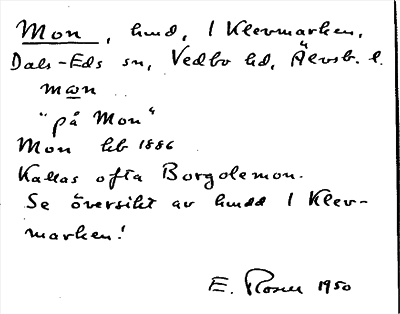 Mon, hmd, i Klevmarken,
Dals-Eds sn, Vedbo hd, Älvsb. l.
mωn
"på Mon"
Mon hb 1886
Kallas ofta Borgolemon.
Se översikt av hmdd i Klev-
marken!
E. Rosell 1950